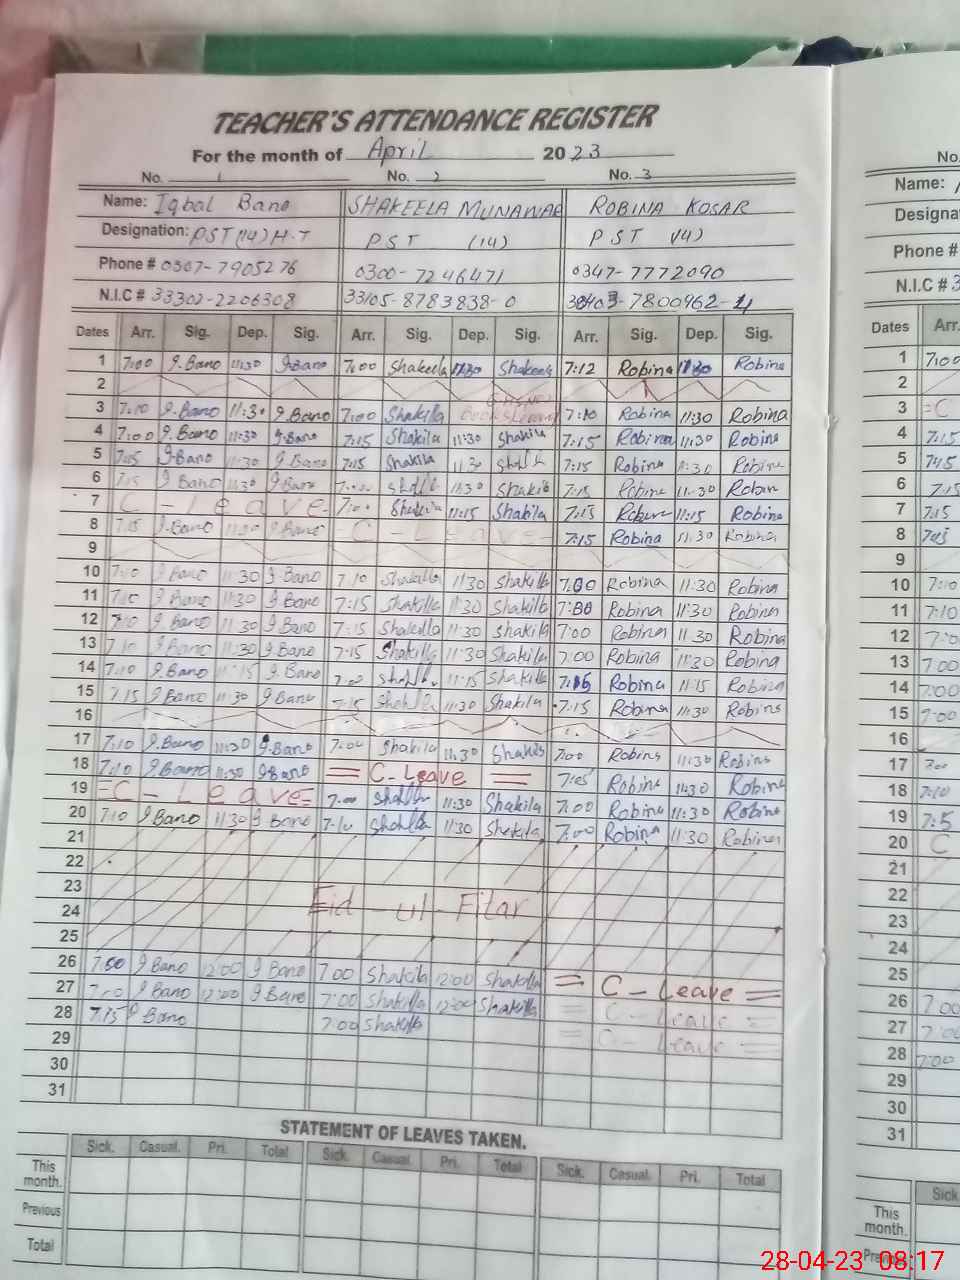 TEACHER'S ATTENDANCE REGISTER
For the month of April 2023
No. 1 No. 2 No. 3
Name: Iqbal Bano SHAKEELA MUNAWAR ROBINA KOSAR
Designation: PST (14) H.T PST (14) PST (14)
Phone # 0307-7905276 0300-7246471 0347-7772090
N.I.C # 33302-2206308 33105-8783838-0 7800962-4
Dates Arr. Sig. Dep. Sig. Arr. Sig. Dep. Sig. Arr. Sig. Dep. Sig.
1 7:00 I.Bano 11:30 I.Bano 7:00 Shakeela 11:30 Shakeela 7:12 Robina 11:30 Robina
2
3 7:10 I.Bano 11:30 I.Bano 7:00 Shakila 7:10 Robina 11:30 Robina
4 7:00 I.Bano 11:30 I.Bano 7:15 Shakila 11:30 Shakila 7:15 Robina 11:30 Robina
5 7:15 I.Bano 11:30 I.Bano 7:15 Shakila 11:30 7:15 Robina 11:30 Robina
6 7:15 I Bano 11:30 I.Bano 11:30 Shakila 7:15 Robina 11:30 Robina
7 C - Leave 7:00 Shakila 11:15 Shakila 7:15 Robina 11:15 Robina
8 7:15 I.Bano 11:30 I.Bano - C - Leave - 7:15 Robina 11:30 Robina
9
10 7:10 I Bano 11:30 I Bano 7:10 Shakilla 11:30 Shakilla 7:00 Robina 11:30 Robina
11 7:10 I Bano 11:30 I Bano 7:15 Shakilla 11:30 Shakila 7:00 Robina 11:30 Robina
12 7:10 I.Bano 11:30 I Bano 7:15 Shakeilla 11:30 Shakila 7:00 Robina 11:30 Robina
13 7:10 I.Bano 11:30 I Bano 7:15 Shakilla 11:30 Shakila 7:00 Robina 11:30 Robina
14 7:10 I.Bano 11:15 I.Bano 7:00 11:15 Shakilla 7:15 Robina 11:15 Robina
15 7:15 I Bano 11:30 I Bano 7:15 11:30 Shakila 7:15 Robina 11:30 Robina
16
17 7:10 I.Bano 11:30 I.Bano 7:00 Shakila 11:30 Shakila 7:00 Robina 11:30 Robina
18 7:10 I.Bano 11:30 I Bano = C-Leave = 7:05 Robina 11:30 Robina
19 = C - Leave = 7:00 11:30 Shakila 7:00 Robina 11:30 Robina
20 7:10 I Bano 11:30 I Bano 7:10 11:30 Shakila 7:00 Robina 11:30 Robina
21
22
23
24 Eid - ul - Fitar
25
26 7:00 I Bano 12:00 I Bano 7:00 Shakila 12:00 Shakilla = C - Leave =
27 7:10 I Bano 12:00 I Bano 7:00 Shakilla 12:00 Shakilla = C - Leave =
28 7:15 I Bano 7:00 Shakilla = C - Leave =
29
30
31
STATEMENT OF LEAVES TAKEN.
Sick. Casual. Pri. Total Sick. Casual. Pri. Total Sick. Casual. Pri. Total
This month.
Previous
Total
No.
Name:
Designa
Phone #
N.I.C # 3
Dates Arr.
1 7:00
2
3 =C
4 7:15
5
6 7:15
7 7:15
8
9
10 7:10
11 7:10
12 7:00
13 7:00
14 7:00
15 7:00
16
17 7:00
18 7:10
19 7:5
20 C
21
22
23
24
25
26 7:00
27 7:00
28 7:00
29
30
31
Sick
This month.
Previous
28-04-23 08:17